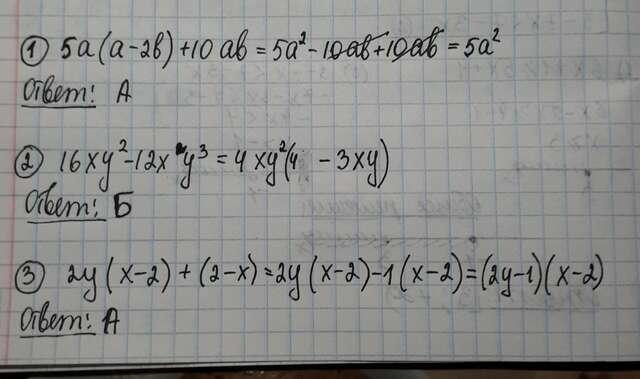 ① 5a(a-2b)+10ab=5a²-10ab+10ab=5a²
Ответ: А
② 16xy²-12x²y³=4xy²(4 -3xy)
Ответ: Б
③ 2y(x-2)+(2-x)=2y(x-2)-1(x-2)=(2y-1)(x-2)
Ответ: А